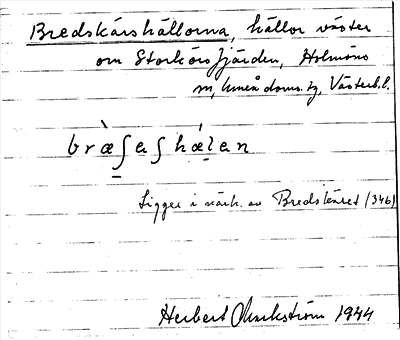 Bredskärshällorna, hällor väster
om Storkårsfjärden, Holmöns
sn, Umeå doms.ag, Västerb. l.
bræ̀ʃaʃhǽlan
Ligger i närh. av Bredskäret (346)
Herbert Markström 1944